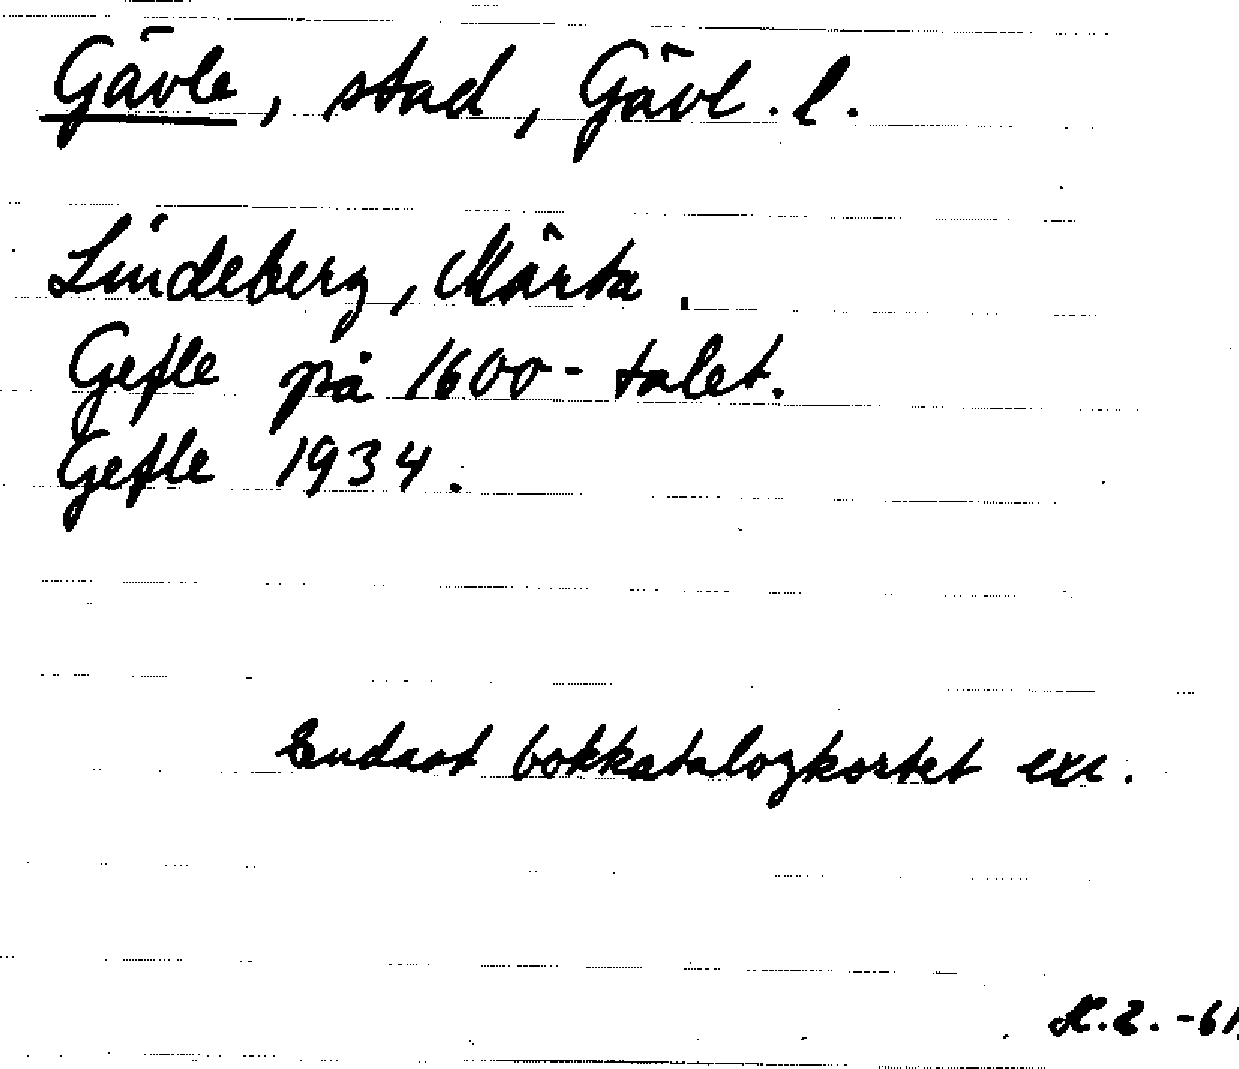 Gävle, stad, Gävl. l.
Lindeberg, Märta.
Gefle på 1600-talet.
Gefle 1934.
Endast bokkatalogkortet exc.
-61.